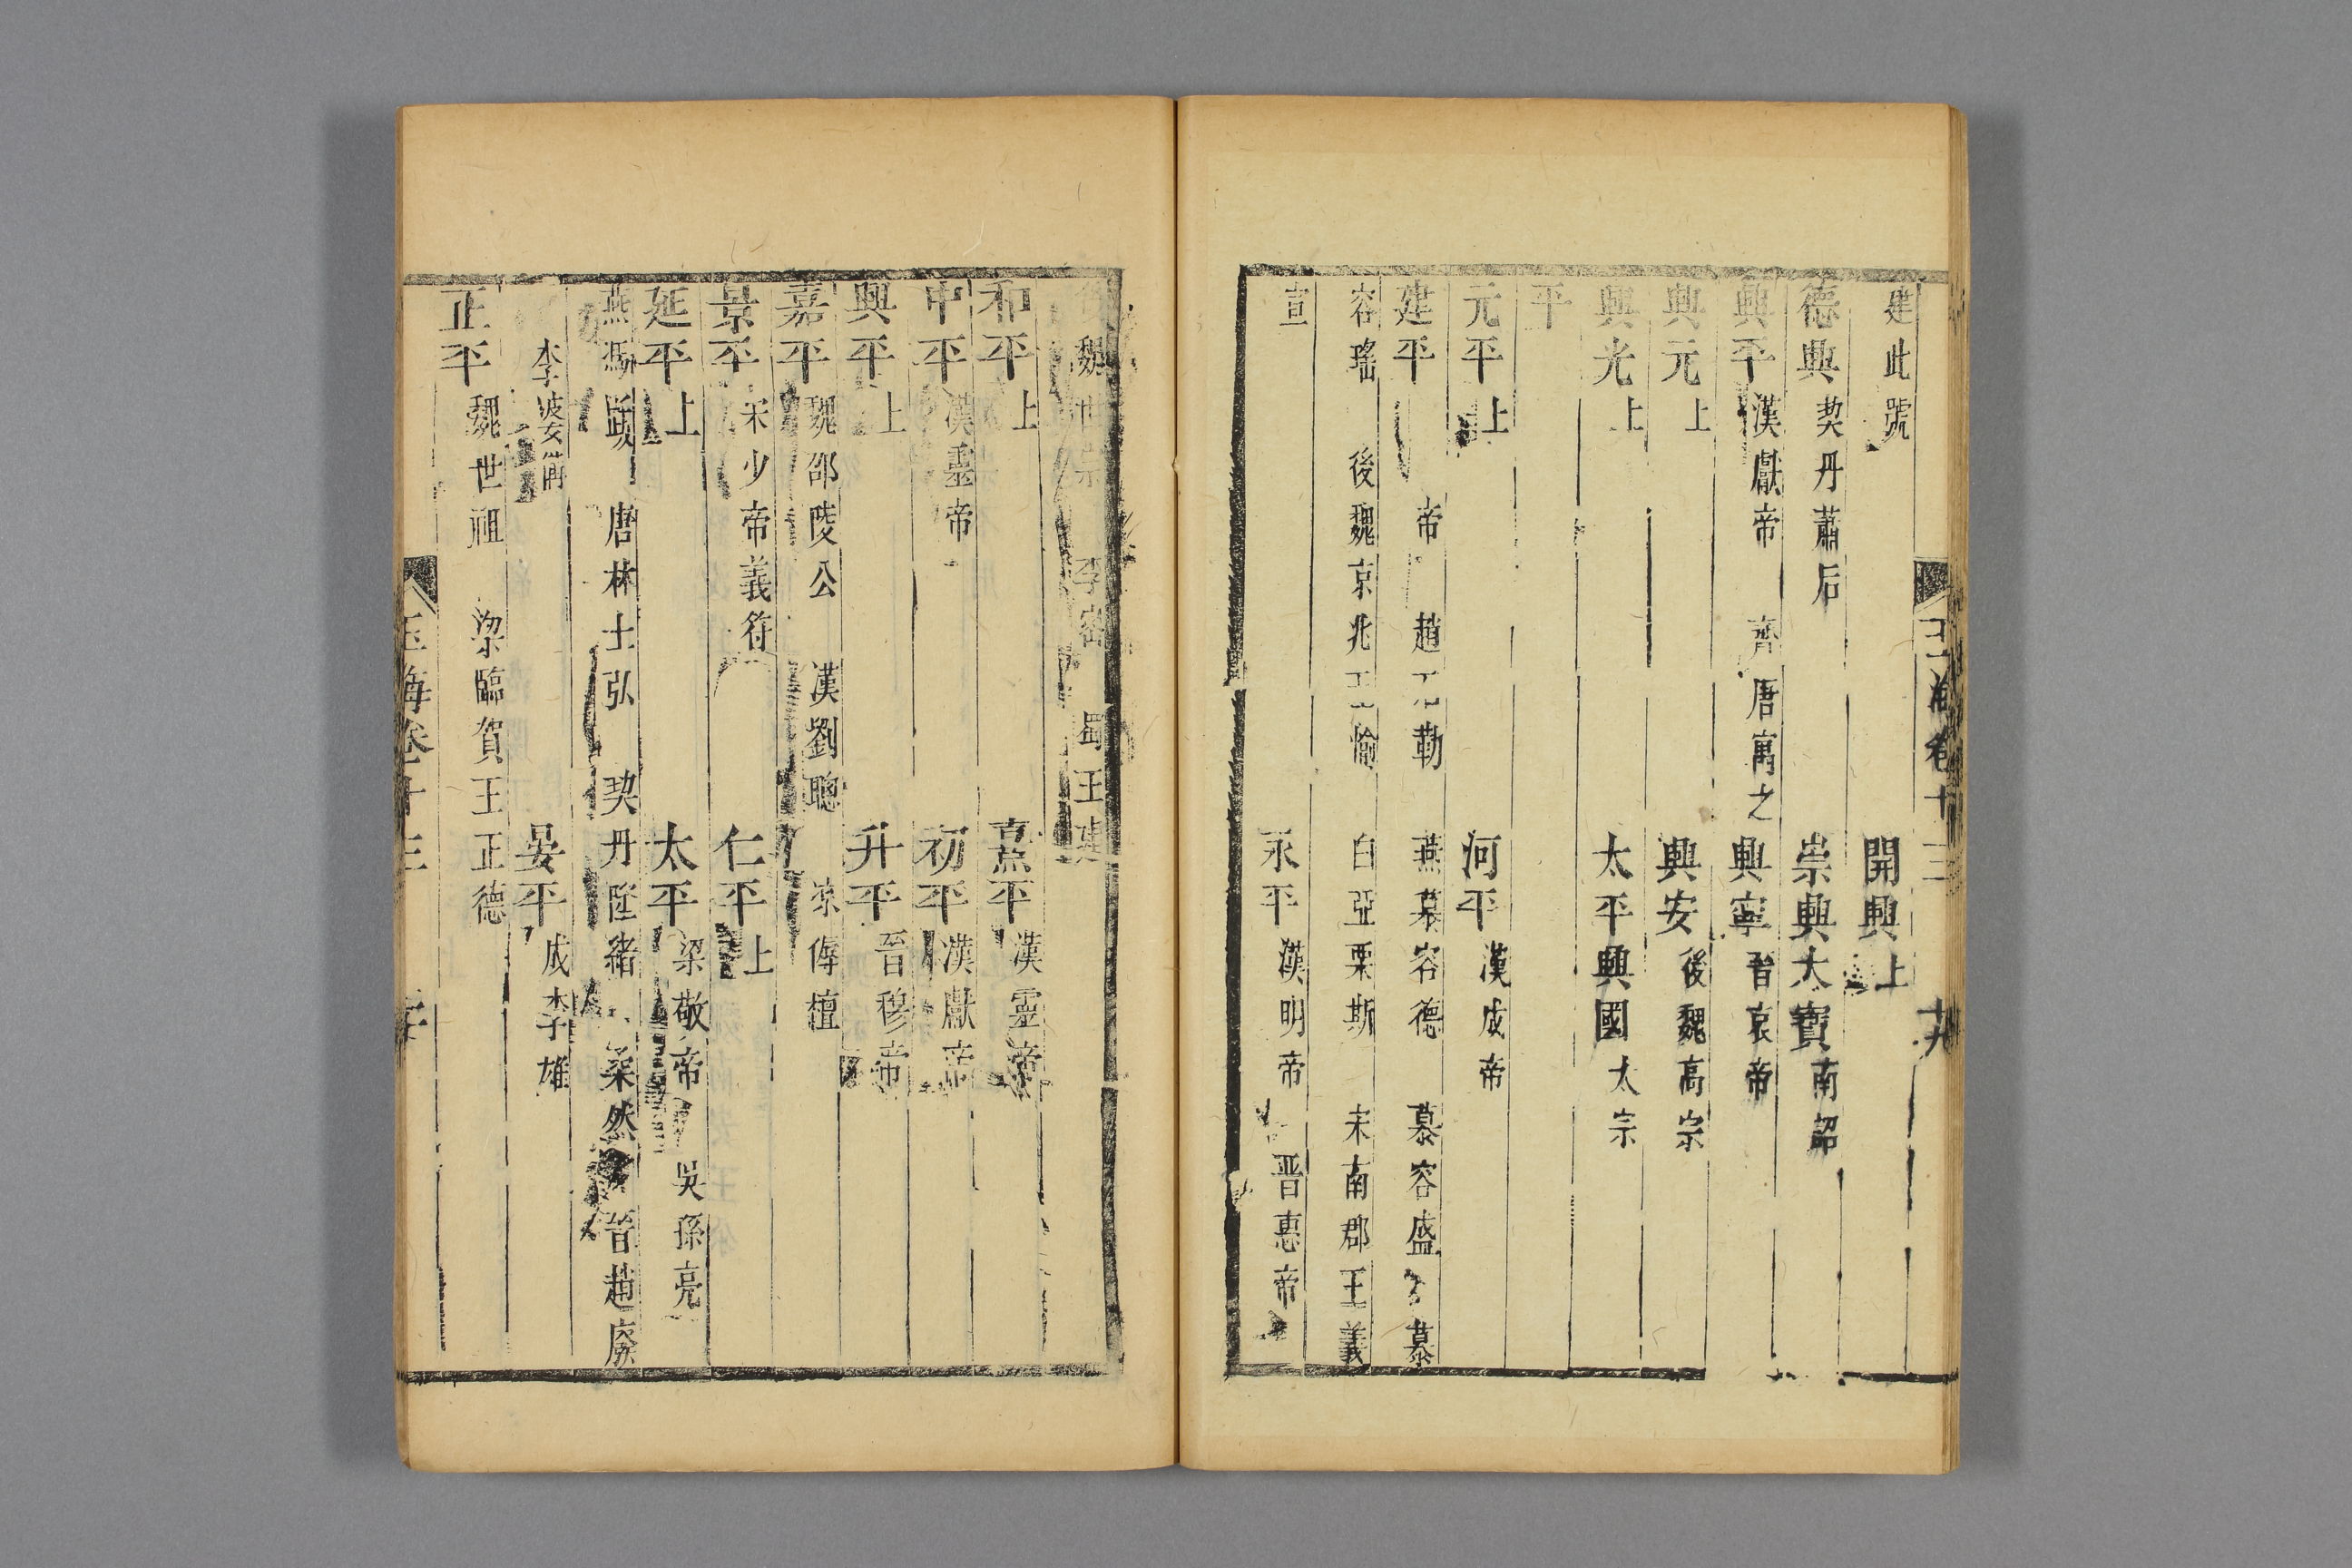 玉海卷十三 十九
建此號 開興上
德興契丹蕭后 崇興大寶南詔
興平漢獻帝 齊唐寓之 興寧晉哀帝
興元上 興安後魏高宗
興光上 太平興國太宗
平
元平上 河平漢成帝
建平 帝 趙 勒 燕慕容德 慕容盛 慕
容瑤 後魏京兆王愉 白亞栗斯 宋南郡王義
宣 永平漢明帝 晉惠帝
魏世宗 李密 蜀王建
和平上 熹平漢靈帝
中平漢靈帝 初平漢獻帝
興平上 升平晉穆帝
嘉平魏邵陵公 漢劉聰 凉傉檀
景平宋少帝義符 仁平上
延平上 太平梁敬帝 吳孫亮
燕馮跋 唐林士弘 契丹隆緒 柔然 晉趙廞
李婆備 晏平成李雄
正平魏世祖 梁臨賀王正德
玉海卷十三